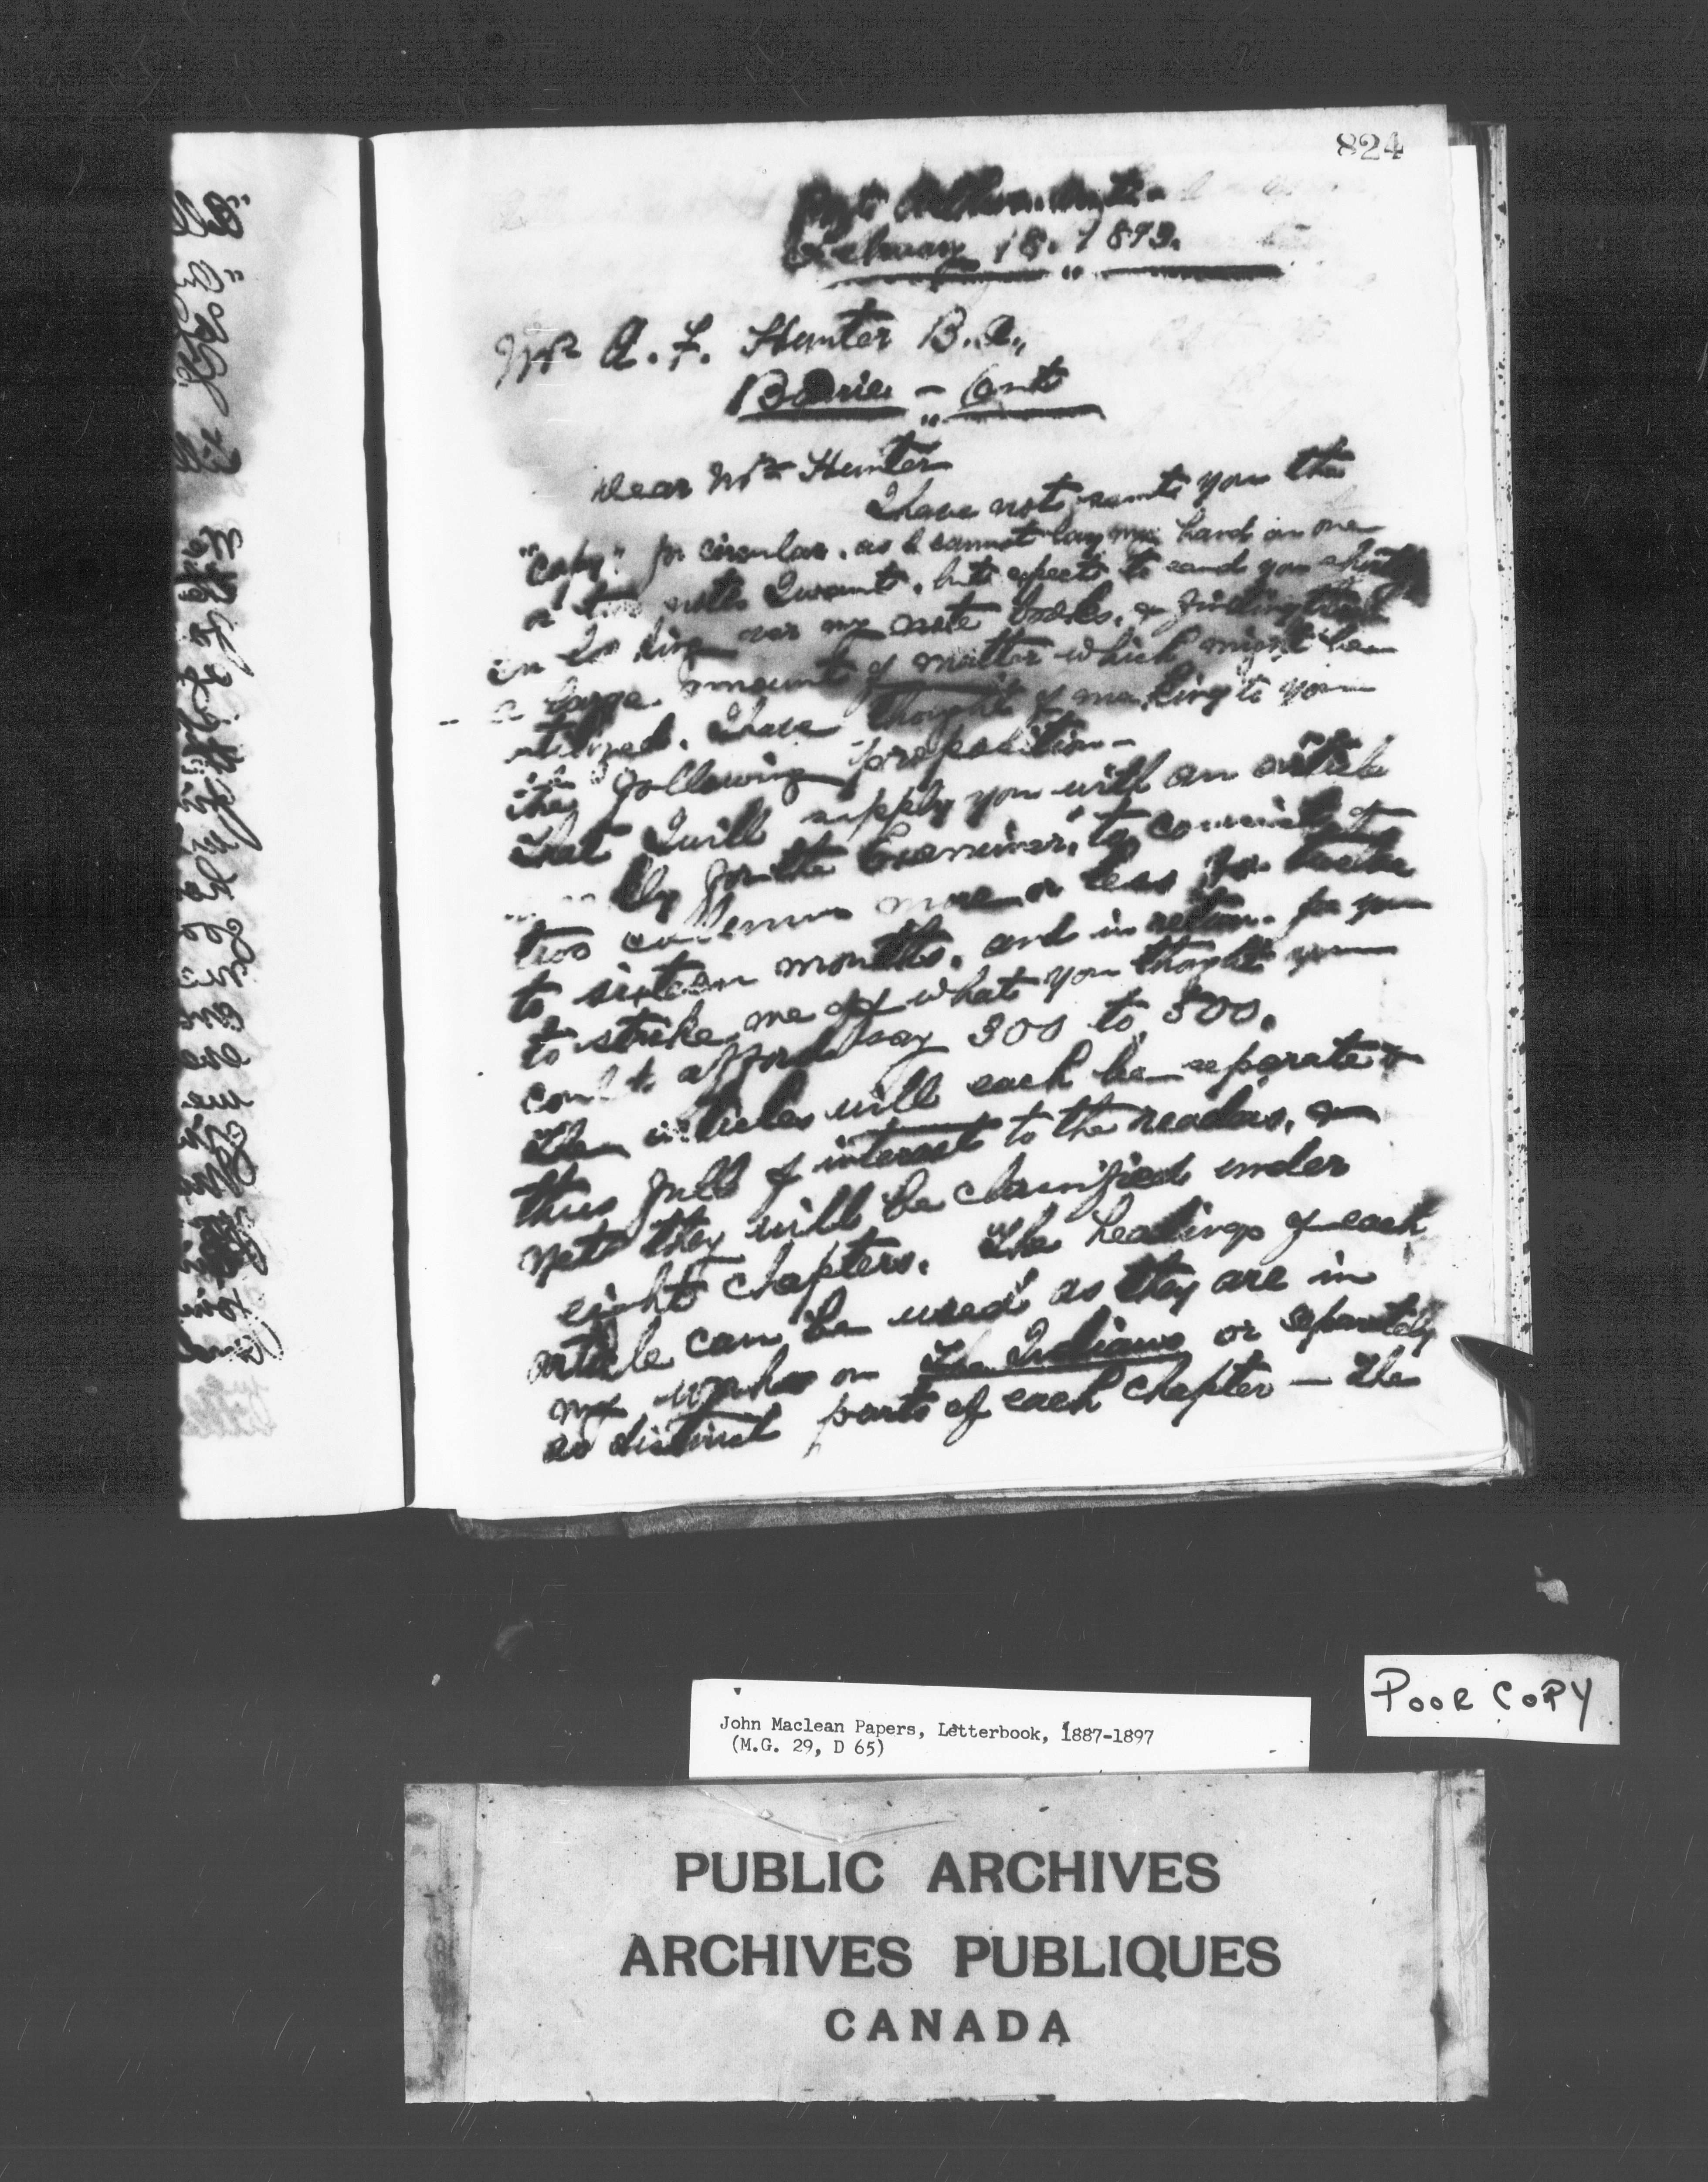 824
February 18. 1893.
Mr A. F. Hunter B.A.,
Barrie - Ont
Dear Mr Hunter
I have not sent you the
"Copy" for circular, as I cannot lay my hand on one
or two notes I want, but expect to send you shortly
in looking over my note books, & finding
a large amount of matter which might be
utilized. I have thought of making to you
the following proposition-
That I will supply you with an article
for the Examiner, to consist of
two columns more or less for twelve
to sixteen months, and in return for you
to strike me off what you thought you
could afford say 300 to 500.
The articles will each be separate &
thus full of interest to the readers, &
yet they will be classified under
eight chapters. The headings of each
article can be used as they are in
my on The Indians or separately
as distinct parts of each chapter — the
POOR COPY
John Maclean Papers, Letterbook, 1887-1897
(M.G. 29, D 65)
PUBLIC ARCHIVES
ARCHIVES PUBLIQUES
CANADA